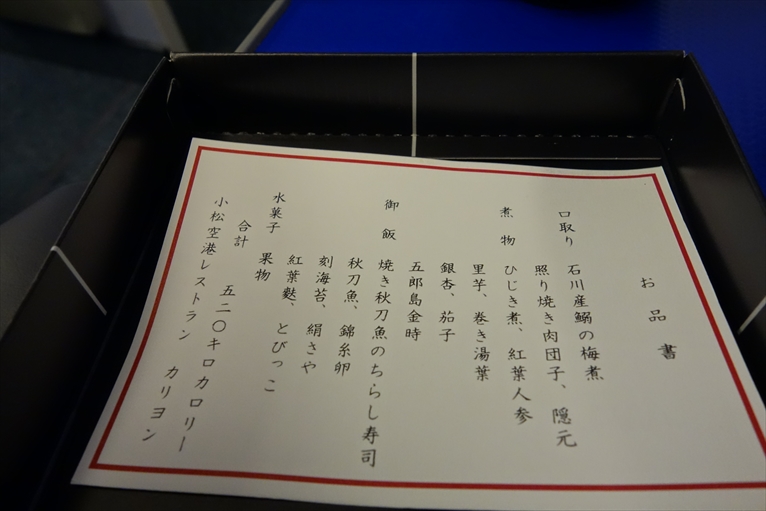 お品書
口取り 石川産鰯の梅煮
照り焼き肉団子、隠元
煮物 ひじき煮、紅葉人参
里芋、巻き湯葉
銀杏、茄子
五郎島金時
御飯 焼き秋刀魚のちらし寿司
秋刀魚、錦糸卵
刻海苔、絹さや
紅葉麩、とびっこ
水菓子 果物
合計 五二〇キロカロリー
小松空港レストラン カリヨン